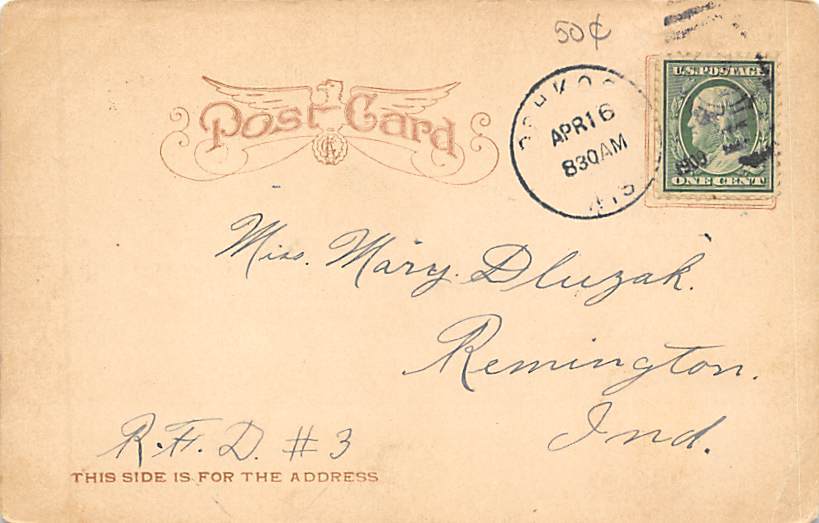 50¢
Post Card
OSHKOSH
APR 16
830 AM
1909
WIS
U.S. POSTAGE
ONE CENT
Miss. Mary. Dluzak.
Remington.
Ind.
R.F.D. #3
THIS SIDE IS FOR THE ADDRESS